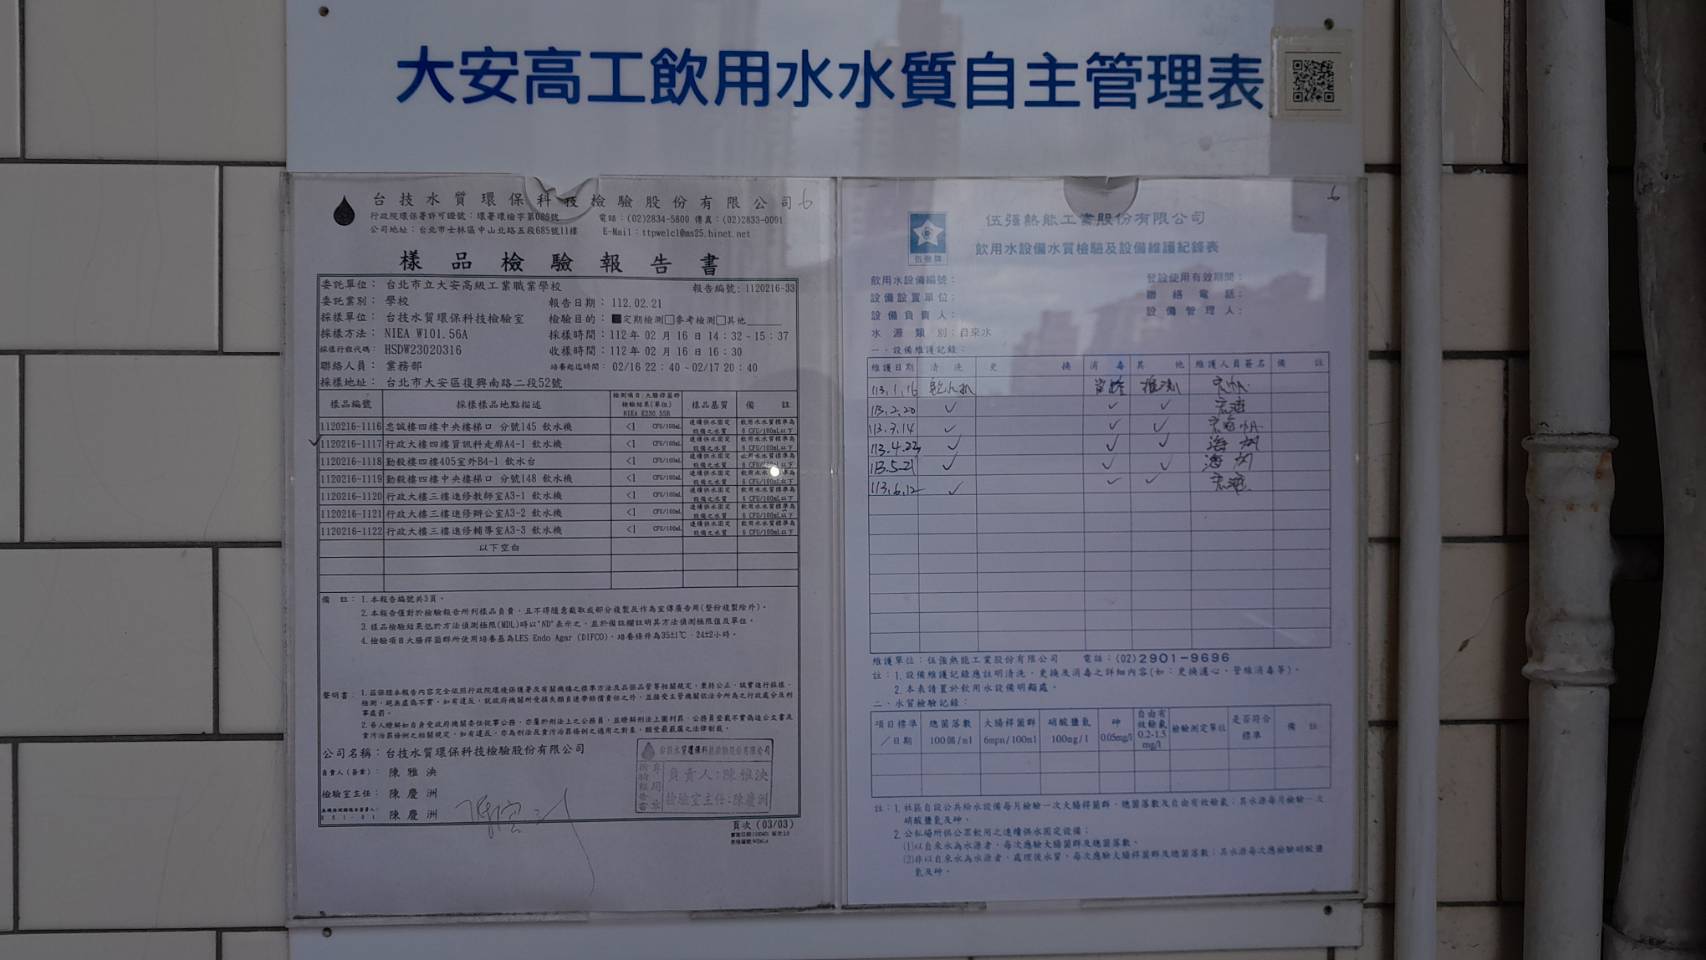 大安高工飲用水水質自主管理表
台技水質環保科技檢驗股份有限公司
6
行政院環保署許可證號：環署環檢字第085號
電話：(02)2834-5800 傳真：(02)2833-0091
公司地址：台北市士林區中山北路五段685號11樓
E-Mail：ttpwelcl@ms25.hinet.net
樣品檢驗報告書
委託單位：台北市立大安高級工業職業學校
報告編號：1120216-33
委託業別：學校
報告日期：112.02.21
採樣單位：台技水質環保科技檢驗室
檢驗目的：■定期檢測□參考檢測□其他
採樣方法：NIEA W101.56A
採樣時間：112年 02月 16日 14：32 - 15：37
採樣行程代碼：HSDW23020316
收樣時間：112年 02月 16日 16：30
聯絡人員：業務部
培養起迄時間：02/16 22：40 ~ 02/17 20：40
採樣地址：台北市大安區復興南路二段52號
樣品編號 採樣樣品地點描述 檢測項目：大腸桿菌群 檢驗結果(單位) NIEA E230.55B 樣品基質 備 註
1120216-1116 忠誠樓四樓中央樓梯口 分號145 飲水機 <1 CFU/100mL 連續供水固定設備之水質 飲用水水質標準為 6 CFU/100mL以下
1120216-1117 行政大樓四樓資訊科走廊A4-1 飲水機 <1 CFU/100mL 連續供水固定設備之水質 飲用水水質標準為 6 CFU/100mL以下
1120216-1118 勤毅樓四樓405室外B4-1 飲水台 <1 CFU/100mL 連續供水固定設備之水質 飲用水水質標準為 6 CFU/100mL以下
1120216-1119 勤毅樓四樓中央樓梯口 分號148 飲水機 <1 CFU/100mL 連續供水固定設備之水質 飲用水水質標準為 6 CFU/100mL以下
1120216-1120 行政大樓三樓進修教師室A3-1 飲水機 <1 CFU/100mL 連續供水固定設備之水質 飲用水水質標準為 6 CFU/100mL以下
1120216-1121 行政大樓三樓進修辦公室A3-2 飲水機 <1 CFU/100mL 連續供水固定設備之水質 飲用水水質標準為 6 CFU/100mL以下
1120216-1122 行政大樓三樓進修輔導室A3-3 飲水機 <1 CFU/100mL 連續供水固定設備之水質 飲用水水質標準為 6 CFU/100mL以下
以下空白
備 註：1.本報告編號共3頁。
2.本報告僅對於檢驗報告所列樣品負責，且不得隨意截取或部分複製及作為宣傳廣告用(整份複製除外)。
3.樣品檢驗結果低於方法偵測極限(MDL)時以"ND"表示之，並於備註欄註明其方法偵測極限值及單位。
4.檢驗項目大腸桿菌群所使用培養基為LES Endo Agar (DIFCO)，培養條件為35±1℃、24±2小時。
聲明書：1.茲保證本報告內容完全依照行政院環境保護署及有關機構之標準方法及品保品管等相關規定，秉持公正、誠實進行採樣、
檢測，絕無虛偽不實，如有違反，就政府機關所受損失願負連帶賠償責任之外，並接受主管機關依法令所為之行政處分及刑
事處罰。
2.吾人瞭解如自身受政府機關委任從事公務，亦屬於刑法上之公務員，並瞭解刑法上圖利罪、公務員登載不實偽造公文書及
貪污治罪條例之相關規定，如有違反，亦為刑法及貪污治罪條例之適用之對象，願受最嚴厲之法律制裁。
公司名稱：台技水質環保科技檢驗股份有限公司
負責人(簽章)：陳雅泱
檢驗室主任：陳慶洲
陳慶洲
台技水質環保科技檢驗股份有限公司
檢驗報告專用章
負責人：陳雅泱
檢驗室主任：陳慶洲
頁次 (03/03)
6
伍強熱能工業股份有限公司
飲用水設備水質檢驗及設備維護紀錄表
飲用水設備編號：
登設使用有效期間：
設備設置單位：
聯絡電話：
設備負責人：
設備管理人：
水源類別：自來水
一、設備維護記錄：
維護日期 清 洗 更 換 消 毒 其 他 維護人員簽名 備 註
113.1.16
113.2.20 ✓ ✓ ✓
113.3.14 ✓ ✓ ✓
113.4.22 ✓ ✓ ✓
113.5.21 ✓ ✓ ✓
113.6.12 ✓ ✓ ✓
維護單位：伍強熱能工業股份有限公司 電話：(02)2901-9696
註：1.設備維護記錄應註明清洗、更換及消毒之詳細內容(如：更換濾心、管線消毒等)。
2.本表請置於飲用水設備明顯處。
二、水質檢驗記錄：
項目標準／日期 總菌落數 100個/ml 大腸桿菌群 6mpn/100ml 硝酸鹽氮 100ng/l 砷 0.05mg/l 自由有效餘氯 0.2-1.5 mg/l 檢驗測定單位 是否符合標準 備 註
註：1.社區自設公共給水設備每月檢驗一次大腸桿菌群、總菌落數及自由有效餘氯；其水源每月檢驗一次
硝酸鹽氮及砷。
2.公私場所供公眾飲用之連續供水固定設備：
(1)以自來水為水源者，每次應驗大腸桿菌群及總菌落數。
(2)非以自來水為水源者，處理後水質，每次應驗大腸桿菌群及總菌落數；其水源每次應檢驗硝酸鹽
氮及砷。